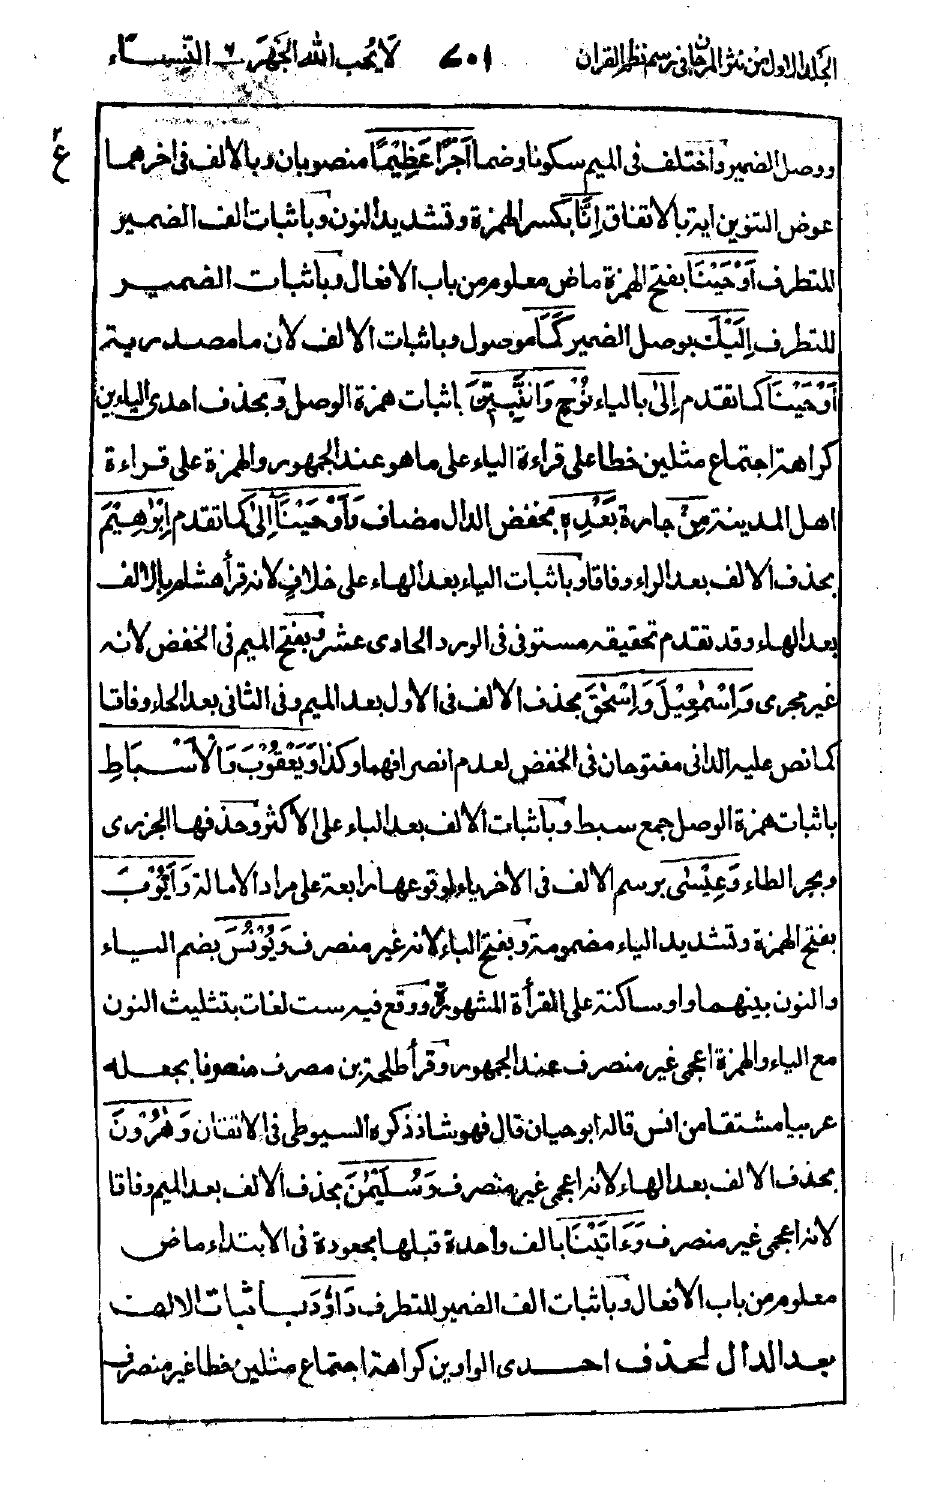 المجلد الاول من نثر المرجان فى رسم نظم القران ٧٠١ لا يحب الله الجهر ٦ النساء
ع
ووصل الضمير واختلف فى الميم سكونا وضما اَجْرًا عَظِيْمًا منصوبان وبالالف فى اخرهما
عوض التنوين اية بالاتفاق اِنَّا بكسر الهمزة وتشديد النون وباثبات الف الضمير
للتطرف اَوْحَيْنَا بفتح الهمزة ماض معلوم من باب الافعال وباثبات الضمير
للتطرف اِلَيْكَ بوصل الضمير كَمَا موصول وباثبات الالف لان ما مصدرية
اَوْحَيْنَا كما تقدم اِلىٰ بالياء نُوْحٍ وَالنَّبِيّٖنَ باثبات همزة الوصل وبحذف احدى الياءين
كراهة اجتماع مثلين خطا على قراءة الياء على ما هو عند الجمهور والهمزة على قراءة
اهل المدينة مِنْ جارة بَعْدِهٖ بخفض الدال مضاف وَاَوْحَيْنَآ اِلىٰ كما تقدم اِبْرٰهِيْمَ
بحذف الالف بعد الراء وفاقا وباثبات الياء بعد الهاء على خلافٍ لانه قرأ هشام بالالف
بعد الهاء وقد تقدم تحقيقه مستوفى فى الورد الحادى عشر وبفتح الميم فى الخفض لانه
غير مجرى وَاِسْمٰعِيْلَ وَاِسْحٰقَ بحذف الالف فى الاول بعد الميم وفى الثانى بعد الحاء وفاقا
كما نص عليه الدانى مفتوحان فى الخفض لعدم انصرافهما وكذا وَيَعْقُوْبَ وَالْاَسْبَاطِ
باثبات همزة الوصل جمع سبط وباثبات الالف بعد الباء على الاكثر وحذفها الجزرى
وبجر الطاء وَعِيْسٰى برسم الالف فى الاخر ياء لوقوعها رابعة على مراد الامالة وَاَيُّوْبَ
بفتح الهمزة وتشديد الياء مضمومة وبفتح الباء لانه غير منصرف وَيُوْنُسَ بضم الياء
والنون بينهما واو ساكنة على القرأة المشهورة ووقع فيه ست لغات بتثليث النون
مع الياء والهمزة اعجمى غير منصرف عند الجمهور وقرأ طلحة بن مصرف منصوفا بجعله
عربيا مشتقا من انس قاله ابو حيان قال فهو شاذ ذكره السيوطى فى الاتقان وَهٰرُوْنَ
بحذف الالف بعد الهاء لانه اعجمى غير منصرف وَسُلَيْمٰنَ بحذف الالف بعد الميم وفاقا
لانه اعجمى غير منصرف وَءَاتَيْنَا بالف واحدة قبلها مجعودة فى الابتداء ماض
معلوم من باب الافعال وباثبات الف الضمير للتطرف دَاوٗدَ باثبات الالف
بعد الدال لحذف احدى الواوين كراهة اجتماع مثلين خطا غير منصرف